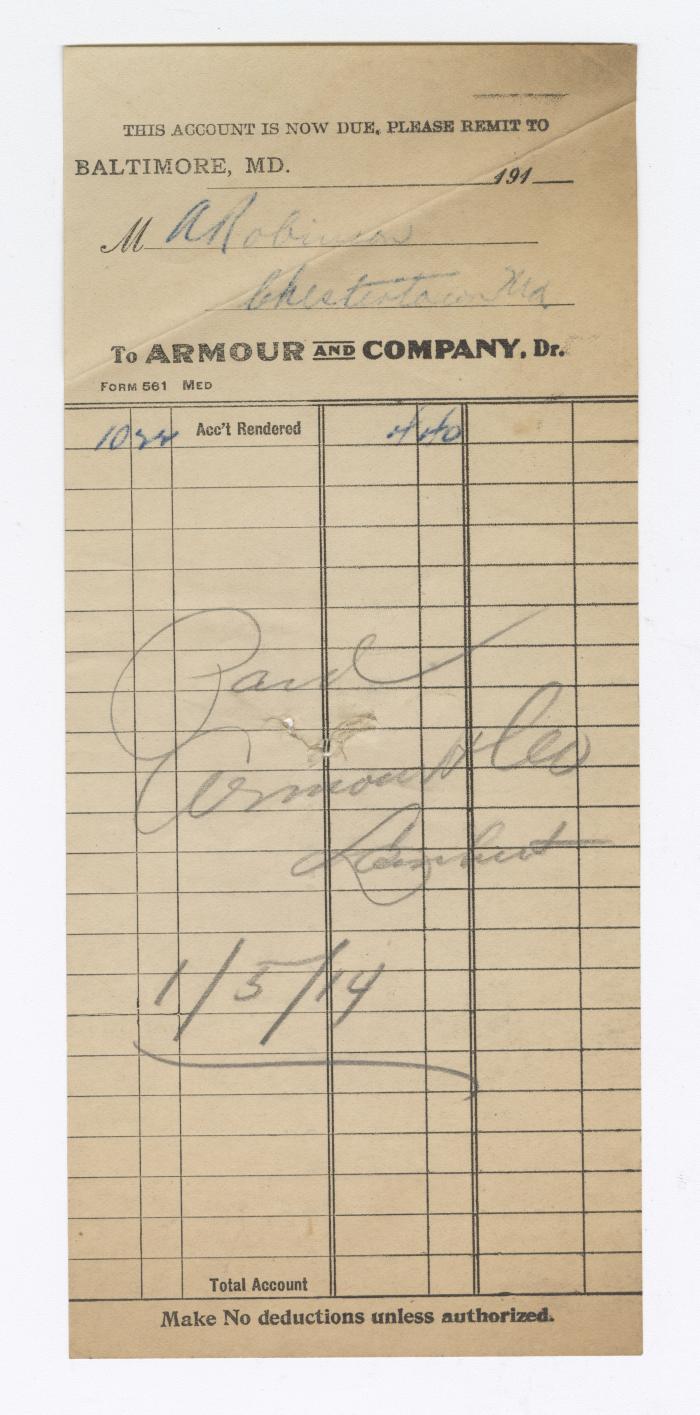 THIS ACCOUNT IS NOW DUE, PLEASE REMIT TO
BALTIMORE, MD. 191
M A Robinson
Chestertown Md
To ARMOUR AND COMPANY, Dr.
FORM 561 MED
10 22 Acc't Rendered 4 40
Paid
Armour & Co
Lambert
1/5/14
Total Account
Make No deductions unless authorized.